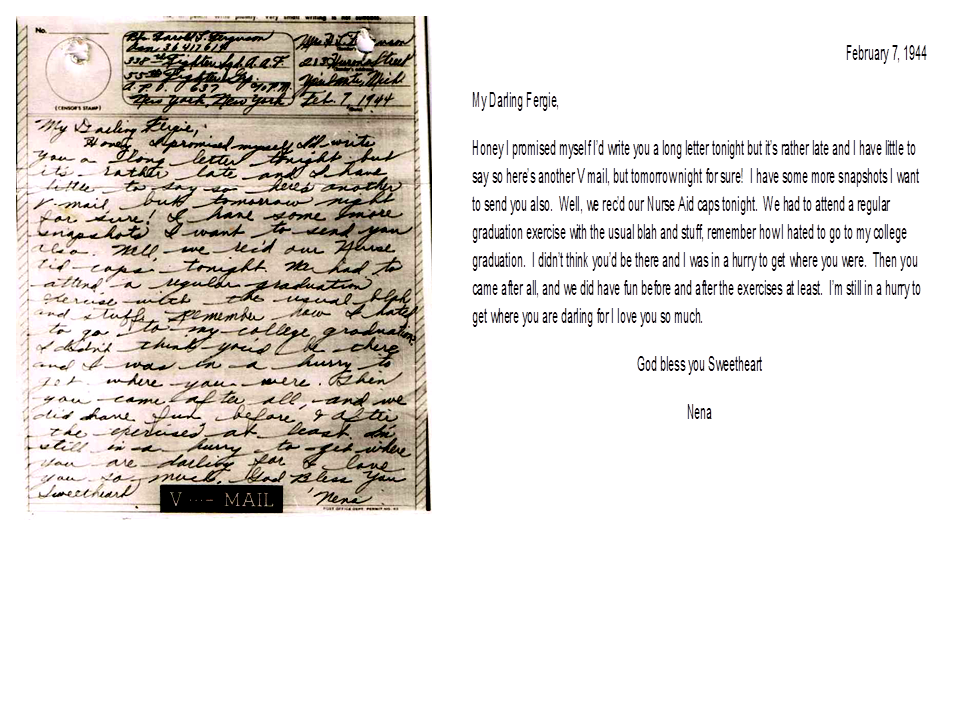 No.
(CENSOR'S STAMP)
Pfc. Harold L. Ferguson
Asn 36417614
338th Fighter Sqn. A.A.F.
55th Fighter Grp.
A.P.O. 637 c/o P.M.
New York, New York
213 Huron Street
Ypsilanti, Mich
Feb. 7, 1944
My Darling Fergie,
Honey, I promised myself I'd write
you a long letter tonight but
it's rather late and I have
little to say so here's another
V-mail, but tomorrow night
for sure! I have some more
snapshots I want to send you
also. Well, we rec'd our Nurse
Aid caps tonight. We had to
attend a regular graduation
exercise with the usual blah
and stuff, remember how I hated
to go to my college graduation.
I didn't think you'd be there
and I was in a hurry to
get where you were. Then
you came after all, and we
did have fun before & after
the exercises at least. I'm
still in a hurry to get where
you are darling for I love
you so much. God Bless You
Sweetheart
Nena
V ···– MAIL
POST OFFICE DEPT. PERMIT NO.
February 7, 1944
My Darling Fergie,
Honey I promised myself I'd write you a long letter tonight but it's rather late and I have little to
say so here's another V mail, but tomorrow night for sure! I have some more snapshots I want
to send you also. Well, we rec'd our Nurse Aid caps tonight. We had to attend a regular
graduation exercise with the usual blah and stuff, remember how I hated to go to my college
graduation. I didn't think you'd be there and I was in a hurry to get where you were. Then you
came after all, and we did have fun before and after the exercises at least. I'm still in a hurry to
get where you are darling for I love you so much.
God bless you Sweetheart
Nena